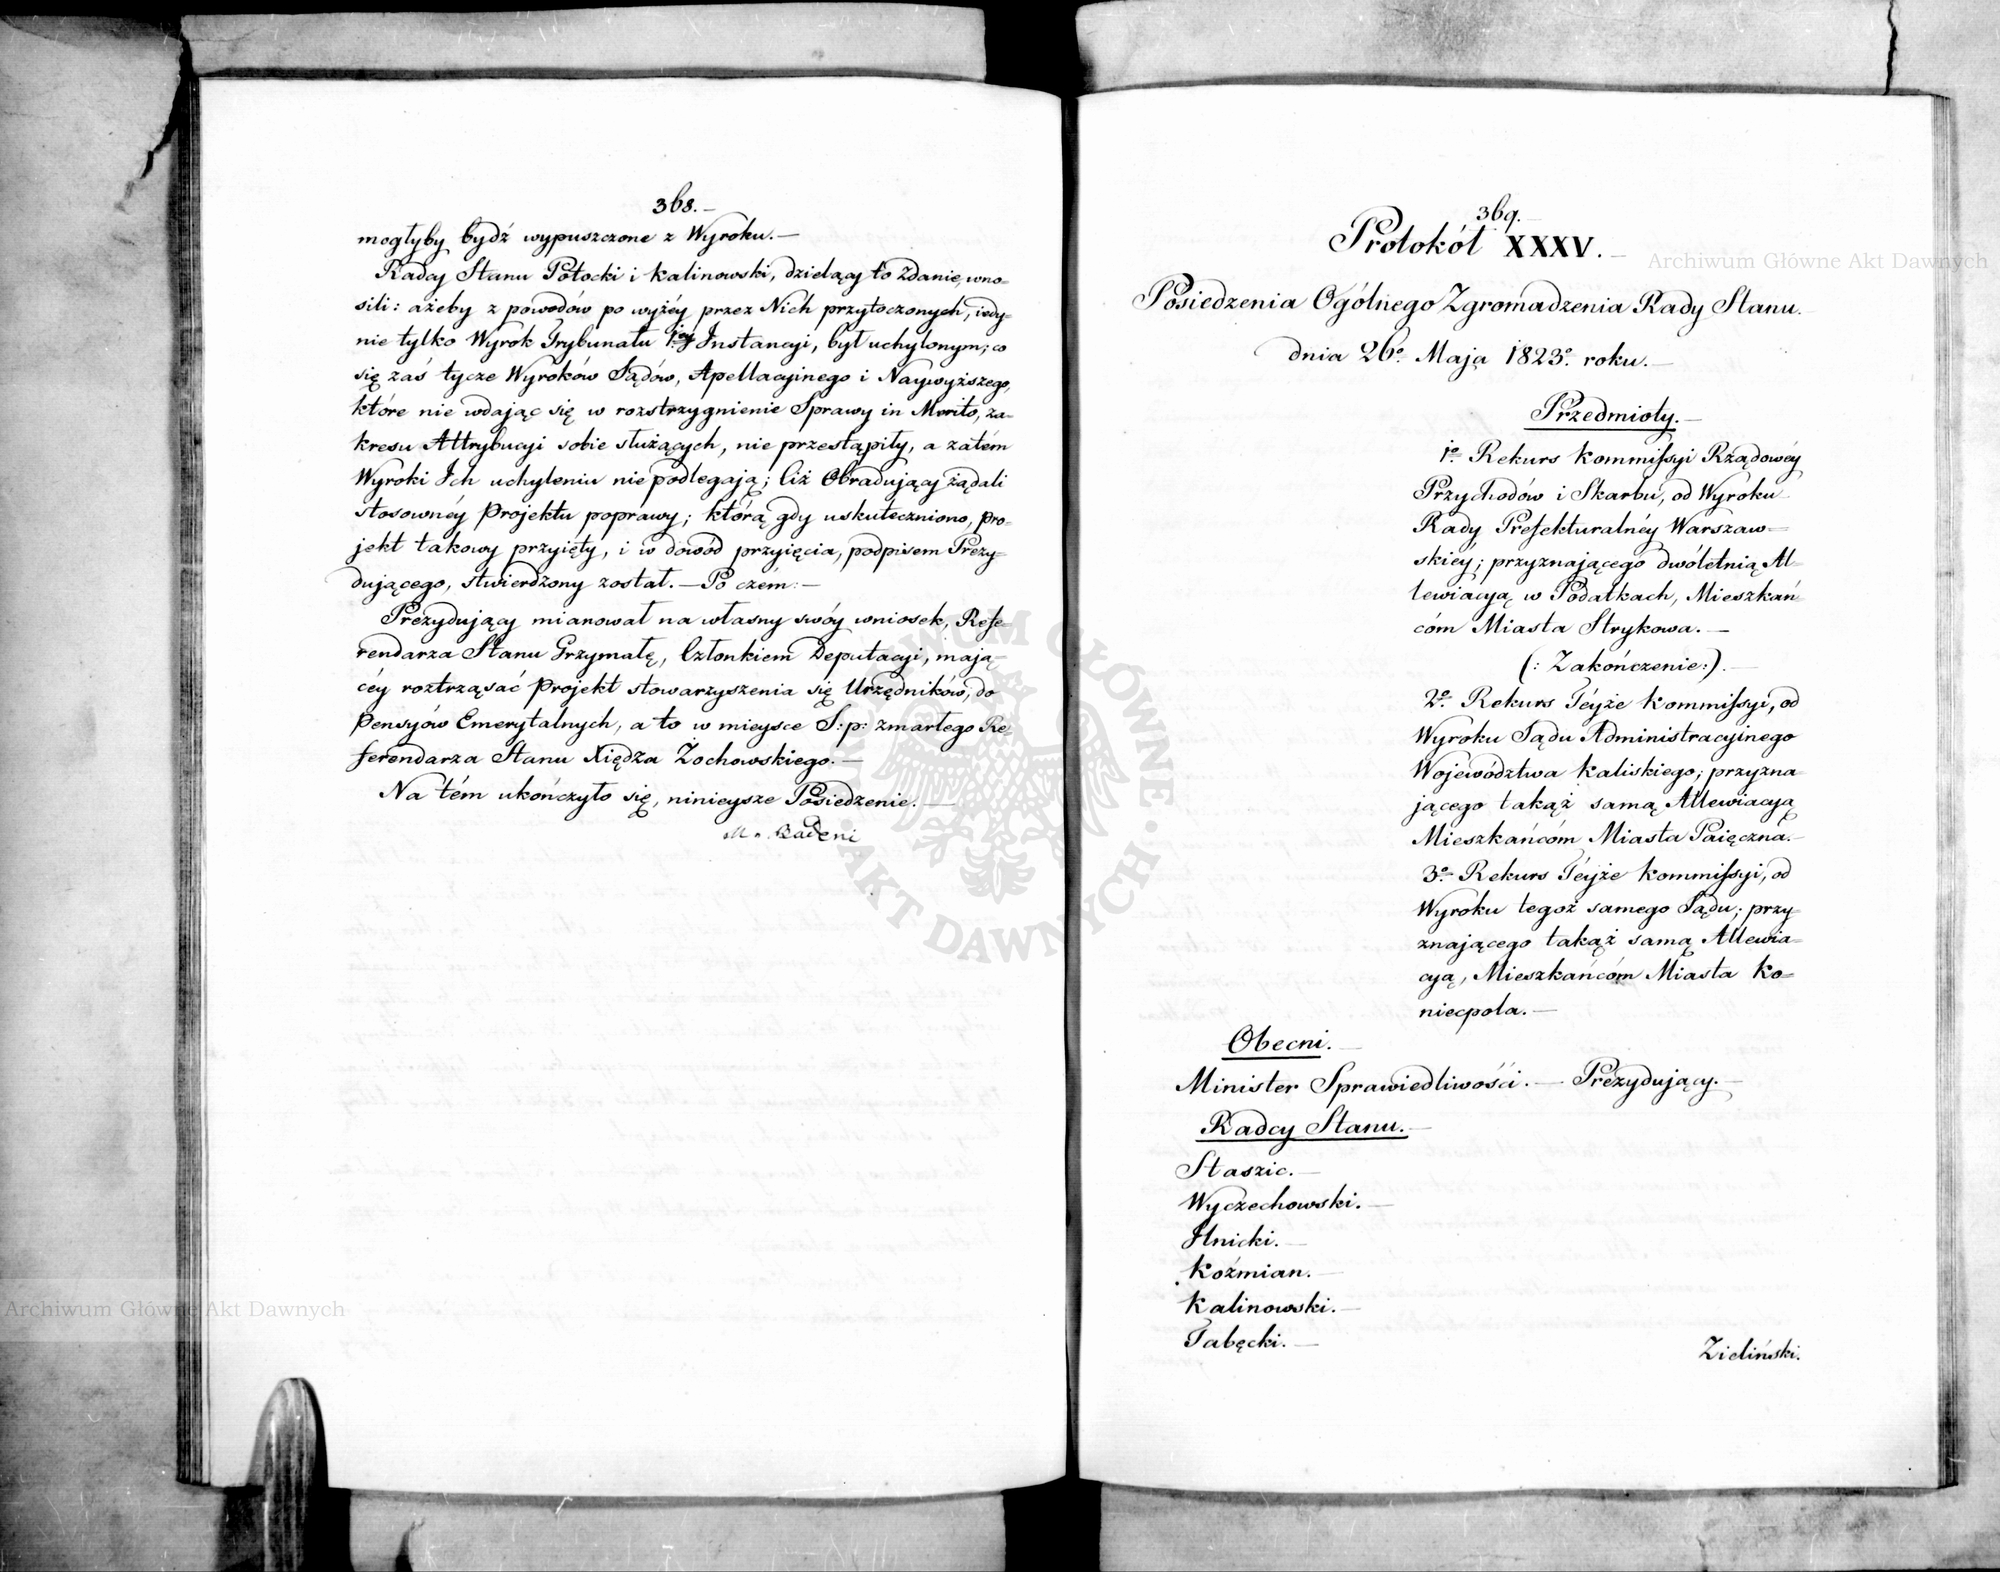 368.-
mogłyby bydź wypuszczone z Wyroku.-
Radcy Stanu Potocki i Kalinowski, dzieląc to Zdanie, wno-
sili: ażeby z powodów po wyżéy przez Nich przytoczonych, iedy-
nie tylko Wyrok Trybunału 1éy Instancyi, był uchylonym; co
się zaś tycze Wyroków Sądów, Apellacyinego i Naywyższego,
które nie wdając się w rozstrzygnienie Sprawy in Merito, za-
kresu Attrybucyi sobie służących, nie przestąpiły, a zatém
Wyroki Ich uchyleniu nie podlegają; Ciż Obradujący żądali
stosownéy Projektu poprawy; którą gdy uskuteczniono, Pro-
jekt takowy przyięty, i w dowód przyięcia, podpisem Prezy-
dującego, stwierdzony został.- Po czém:-
Prezydujący mianował na własny swóy wniosek, Refe-
rendarza Stanu Grzymałę, Członkiem Deputacyi, mają-
céy roztrząsać Projekt stowarzyszenia się Urzędników, do
Pensyów Emerytalnych, a to w mieysce S:p: zmarłego Re-
ferendarza Stanu Xiędza Zochowskiego.-
Na tém ukończyło się, ninieysze Posiedzenie.-
M. Badeni
369.-
Protokół XXXV.-
Posiedzenia Ogólnego Zgromadzenia Rady Stanu.
dnia 26o Maja 1823o roku.-
Przedmioty.-
1o Rekurs Kommissyi Rządowéy
Przychodów i Skarbu, od Wyroku
Rady Prefekturalnéy Warszaw=
skiéy; przyznającego dwóletnią Al-
lewiacyą w Podatkach, Mieszkań=
cóm Miasta Strykowa.-
(: Zakończenie:).-
2o Rekurs Téyże Kommissyi, od
Wyroku Sądu Administracyinego
Województwa Kaliskiego; przyzna-
jącego takąż samą Allewiacyą
Mieszkańcóm Miasta Paięczna.-
3o Rekurs Téyże Kommissyi, od
Wyroku tegoż samego Sądu; przy-
znającego takąż samą Allewia=
cyą, Mieszkańcóm Miasta Ko=
niecpola.-
Obecni.-
Minister Sprawiedliwości.- Prezydujący.-
Radcy Stanu.-
Staszic.-
Wyczechowski.-
Ilnicki.-
Koźmian.-
Kalinowski.-
Tabęcki.-
Zieliński.
Archiwum Główne Akt Dawnych
Archiwum Główne Akt Dawnych
ARCHIWUM GŁÓWNE · AKT DAWNYCH ·